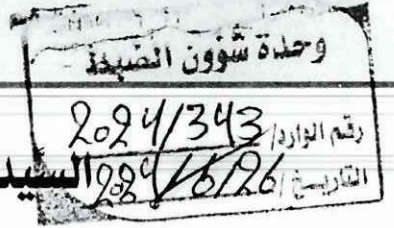 وحدة شؤون الصيدلة
رقم الوارد/ 2024/343
التاريخ/ 2024/6/26
السيد